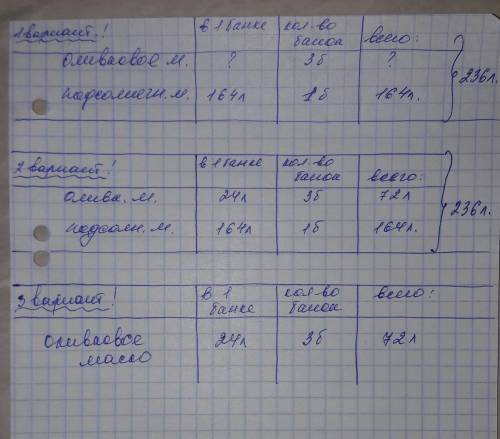 1 вариант! в 1 банке кол.во банок всего:
оливковое м. ? 3б ?
подсолнечн. м. 164л 1б 164л. 236л.
2 вариант! в 1 банке кол.во банок всего:
оливк. м. 24л 3б 72л
подсолн. м. 164л 1б 164л. 236л.
3 вариант! в 1 банке кол.во банок всего:
оливковое масло 24л 3б 72л